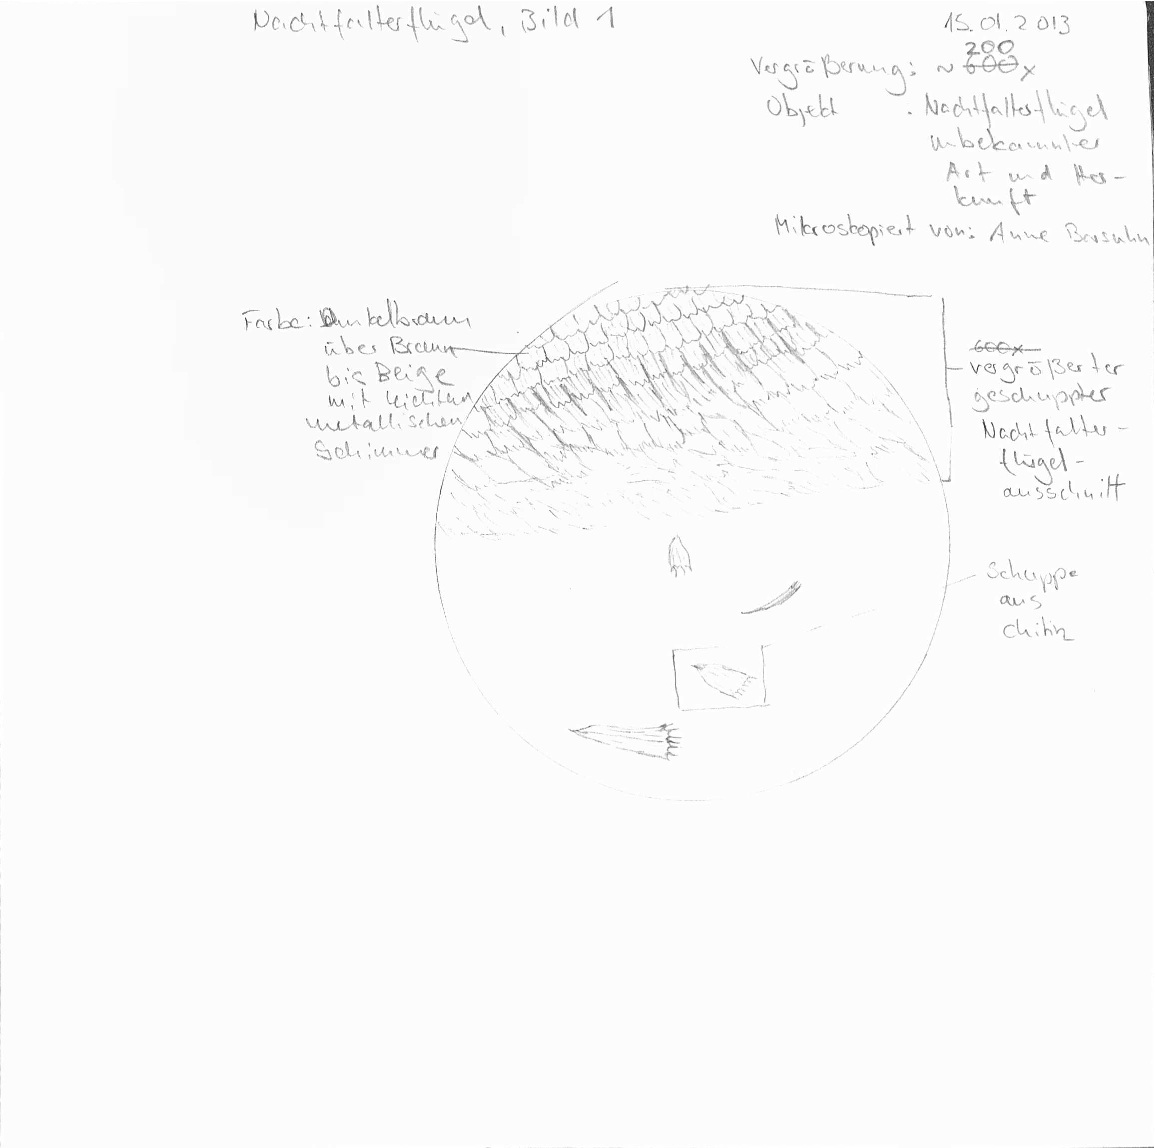 Nachtfalterflügel, Bild 1
15.01.2013
200
Vergrößerung: ~ 600x
Objekt : Nachtfalterflügel
unbekannter
Art und Her-
kunft
Mikroskopiert von: Anne
Farbe: Dunkelbraun
über Braun
bis Beige
mit leichten
metallischen
Schimmer
600x
vergrößerter
geschuppter
Nachtfalter-
flügel-
ausschnitt
Schuppe
aus
Chitin